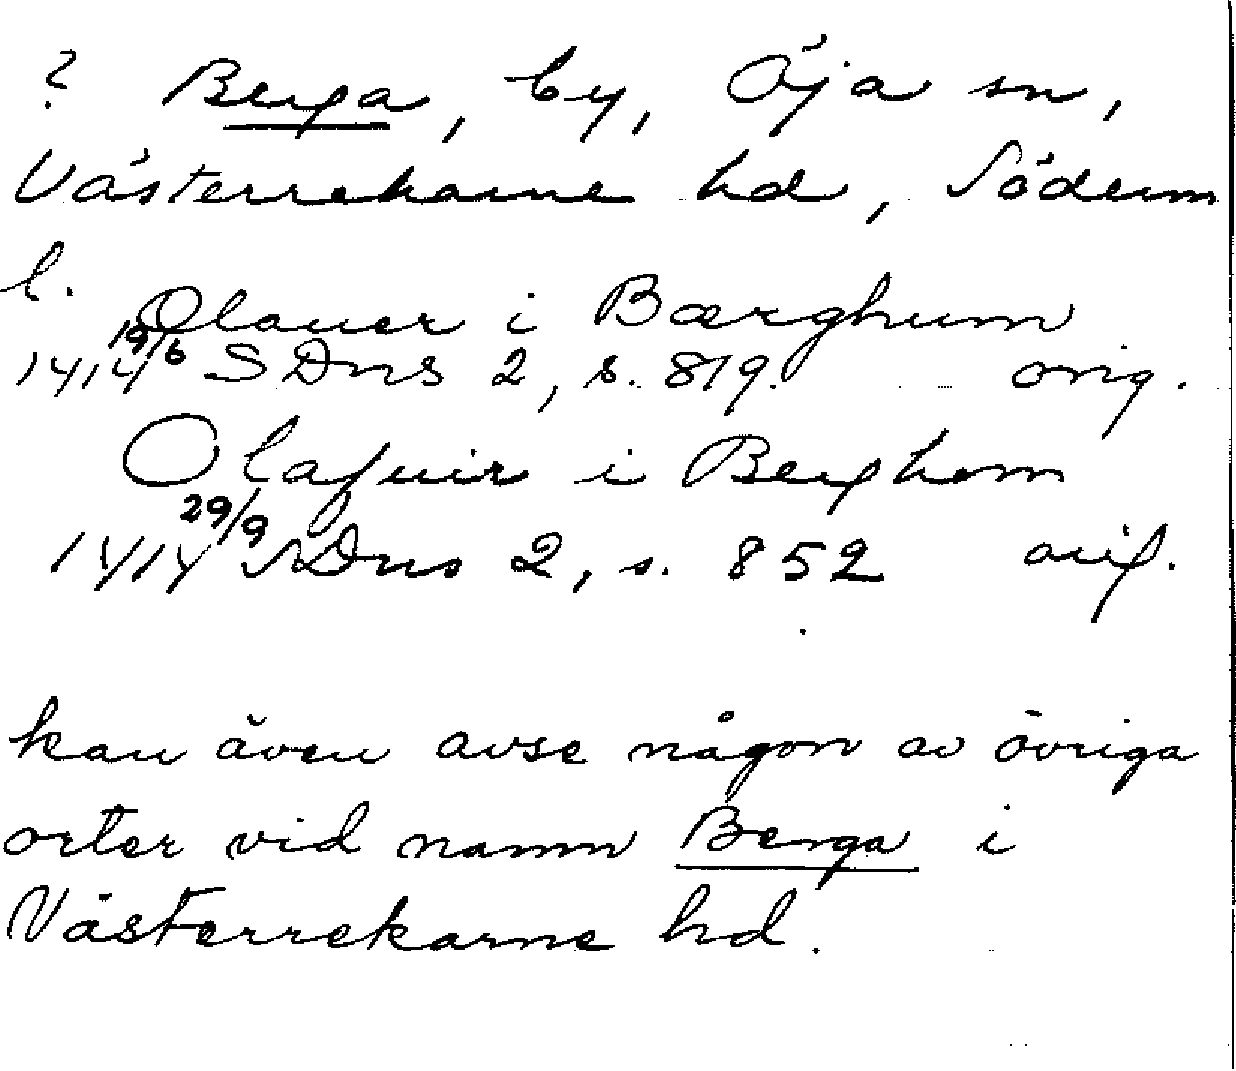 ? Berga, by, Öja sn,
Västerrekarne hd, Söderm
l.
Olauer i Bærghum
19/6
1414 SDns 2, s. 819. orig.
Olafuir i Berghom
29/9
1414 SDns 2, s. 852 orig.
kan även avse någon av övriga
orter vid namn Berga i
Västerrekarne hd.